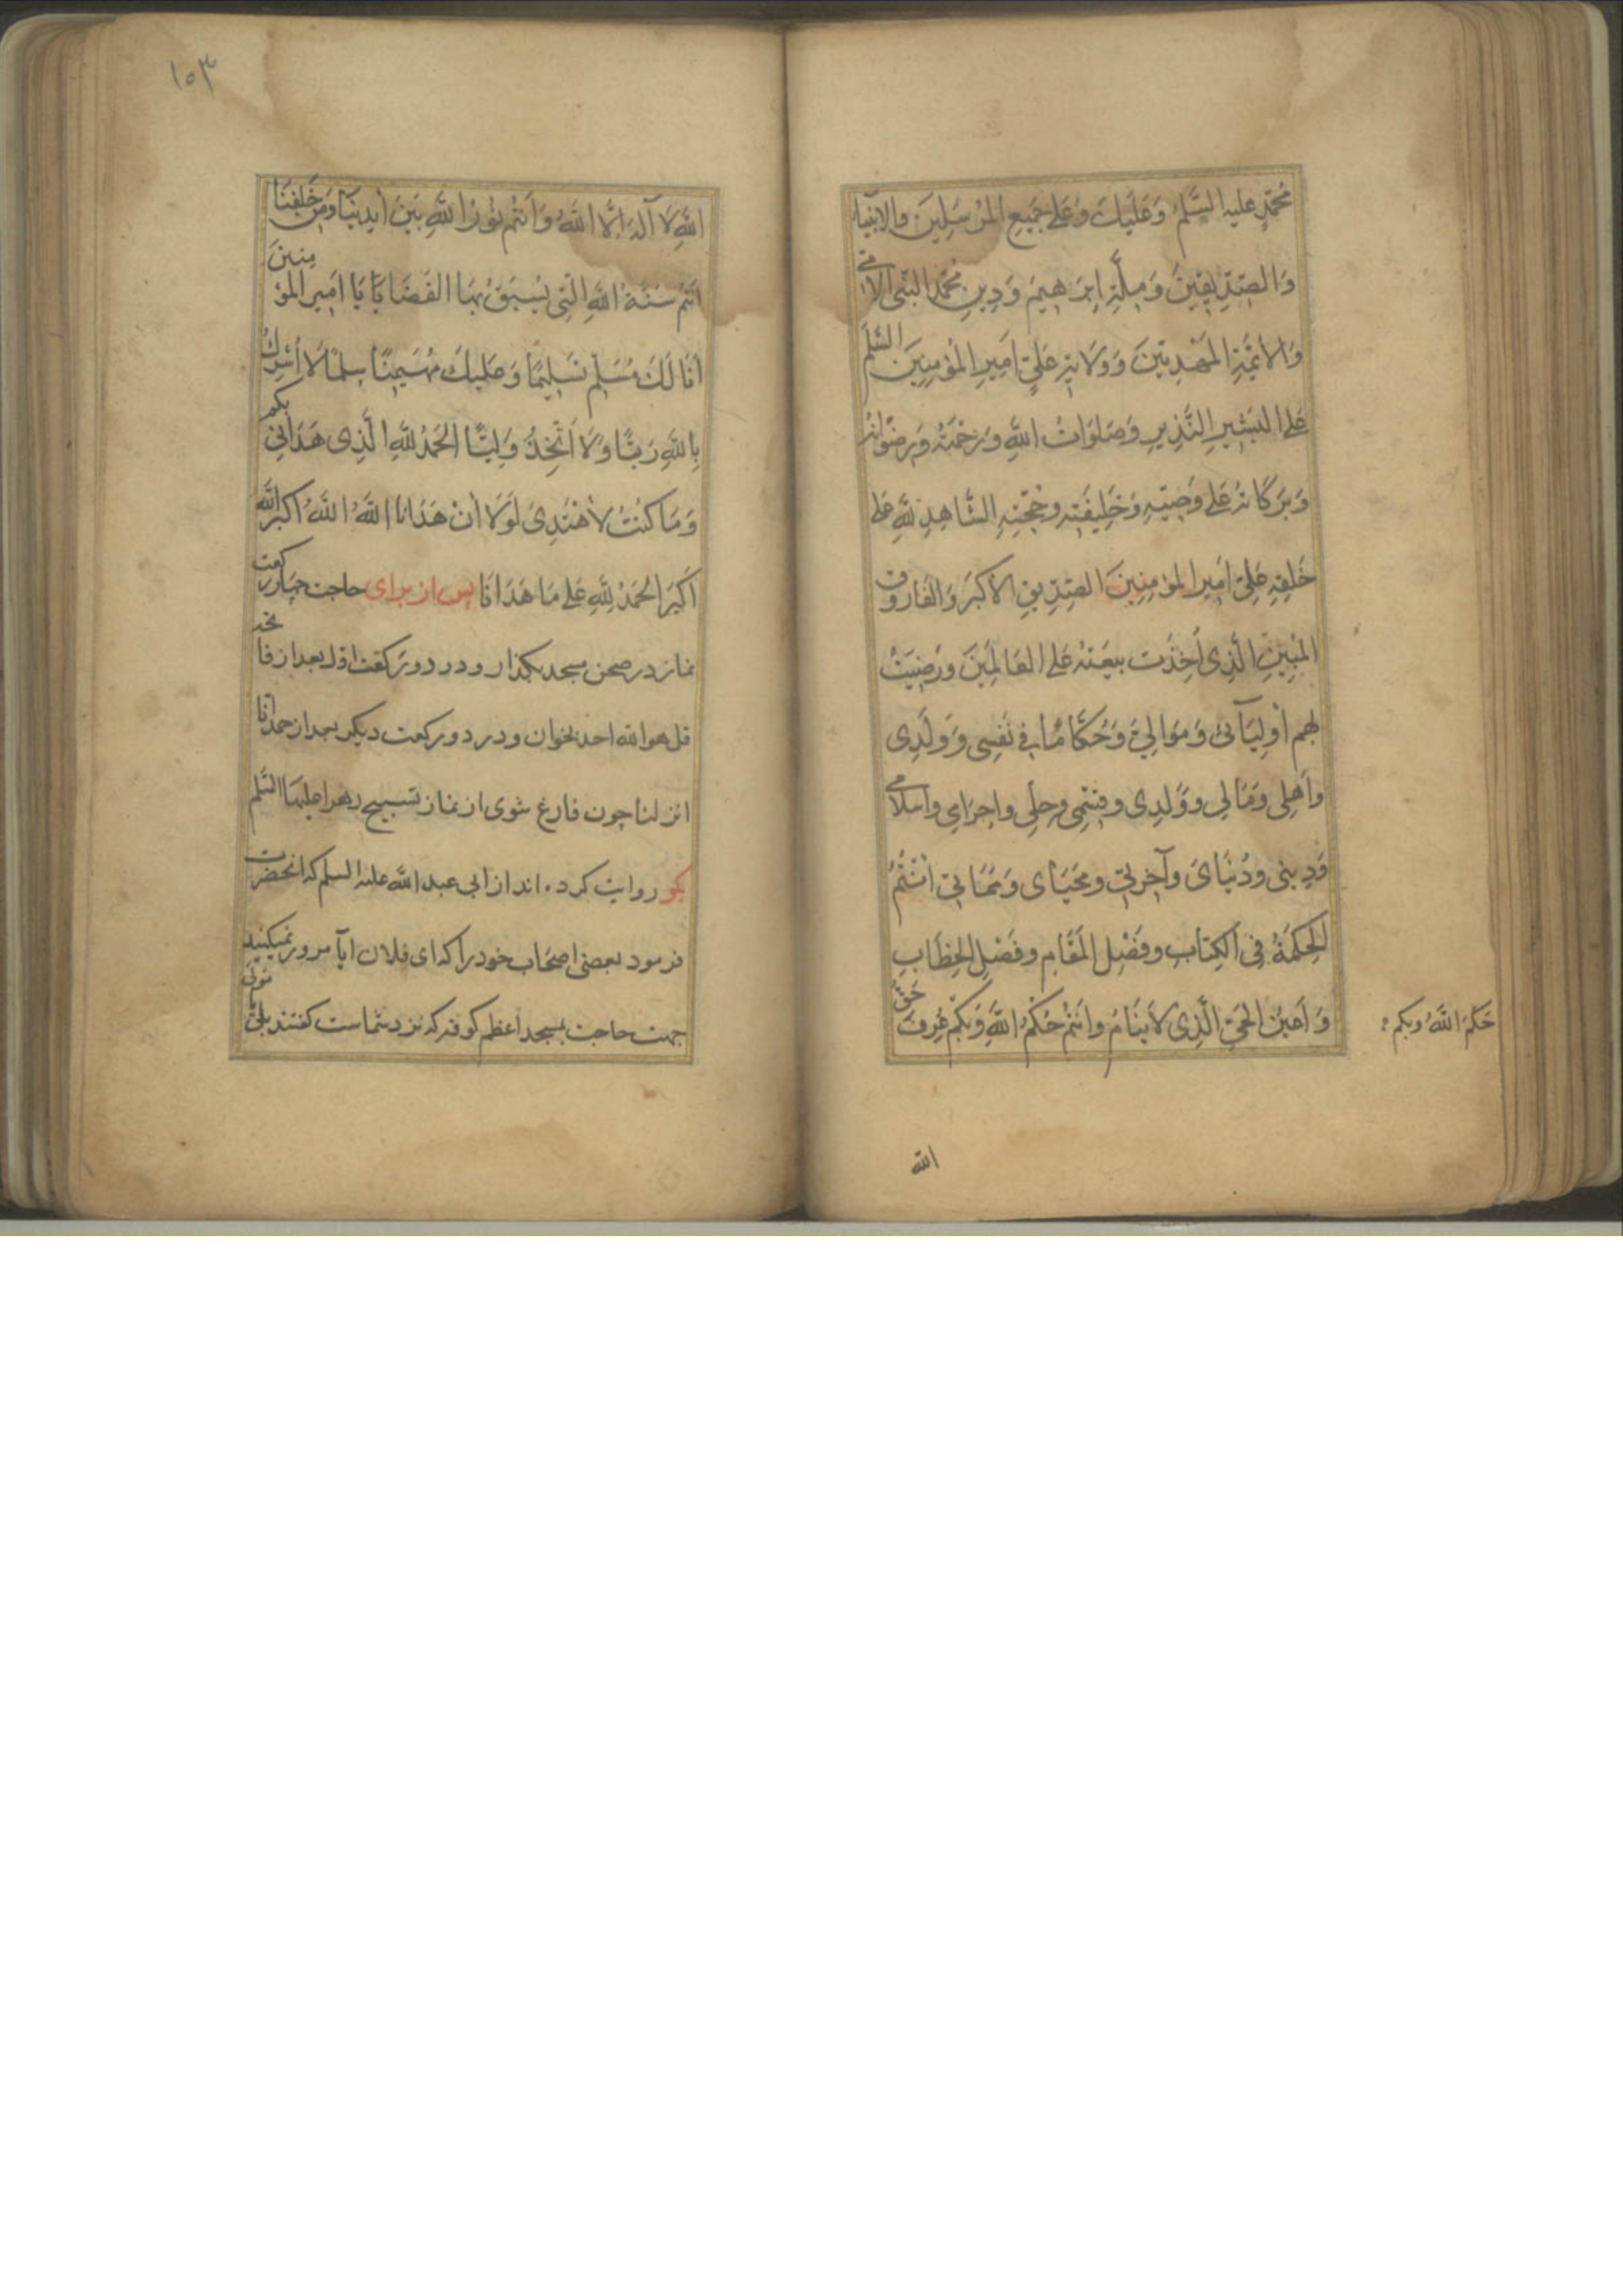 مُحَمَّدٍ علیه السَّلم وَعَلَیكَ وَعَلی جَمیعِ المُرسَلینَ والانبیاء
وَالصِّدِّیقِینَ وَمِلَّةِ اِبرَهیمَ وَدِینِ مُحَمَّدٍ النَّبِیِّ الامی
وَالاَئِمَّةِ المَهدِیّینَ وَوِلایَةِ عَلیٍّ اَمِیرِ المُؤمِنِینَ السَّلم
عَلی البَشِیرِ النَّذِیرِ وَصَلَوَاتُ اللهِ وَرَحْمَتُهُ وَرِضْوَانُهُ
وَبَرَکَاتُهُ عَلی وَصِیِّهِ وَخَلِیفَتِهِ وحُجَّتِهِ الشَّاهِدِ لِلّهِ عَلی
خَلقِهِ عَلِیٍّ اَمِیرِ المؤمِنِینَ الصِّدِّیقِ الاَکبَرِ وَالفَاروقِ
المُبِینِ الَّذِی اُخِذَت بیعَتُهُ عَلی العَالَمِینَ وَرَضِیتُ
بهم اَولِیَآئی وَمَوَالِیَّ وَحُکَّامًا فی نَفسِی وَوَلَدِی
وَاَهلی وَمَالی وَوُلدِی وقِسَمِی وحِلِّی واِحرَامِی واِسلامی
وَدِینی ودُنیَایَ وآخِرَتِی ومَحیَایَ وَمَمَاتِی اَنتُمُ
الحِکمَةُ فِی الکِتَابِ وفَصْلُ المَقَامِ وفَصْلُ الخِطَابِ
وَاَعیُنُ الحَیِّ الَّذِی لاَینَامُ وَاَنتُم حُکْمُ اللهِ وَبِکُم عُرِفَ حَقُّ
حَکَمَ اللهُ وبکم
الله
١٥٣
اللهِ لاَ آلهَ اِلَّا اللهُ وَاَنتُم نُورُ اللهِ بَینَ اَیدِینَا وَمِن خَلفِنَا
اَنتُم سُنَّةُ اللهِ الَّتِی یُسبَقُ بِهَا القَضَایَا یَا اَمِیرَ المؤمنینَ
اَنَا لَكَ مُسَلِّم تَسلِیمًا وَعَلَیكَ سِلمًا لاَ اُشرِكُ
بِاللهِ رَبًّا وَلاَ اَتَّخِذُ وَلِیًّا الحَمدُ لِلّهِ الَّذِی هَدَانِی بکم
وَمَا کُنتُ لاَهْتَدِیَ لَولاَ اَنْ هَدَانَا اللهُ اللهُ اکبر الله
اَکبَر الحَمدُ لِلّهِ عَلی مَا هَدَانَا پس از برای حاجت چهار رکعت
نماز در صحن مسجد بگذار و در دو رکعت اول بعد از فاتحه
قل هو الله احد بخوان و در دو رکعت دیگر بعد از حمد انا
انزلنا چون فارغ شوی از نماز تسبیح زهرا علیها السَّلم
بگو روایت کرده اند از ابی عبد الله علیه السلم که انحضرت
فرمود ببعضی اصحاب خود را که ای فلان ایا مرور نمیکنید
جهت حاجت بمسجد اعظم کوفه که نزد شماست گفتند بلی